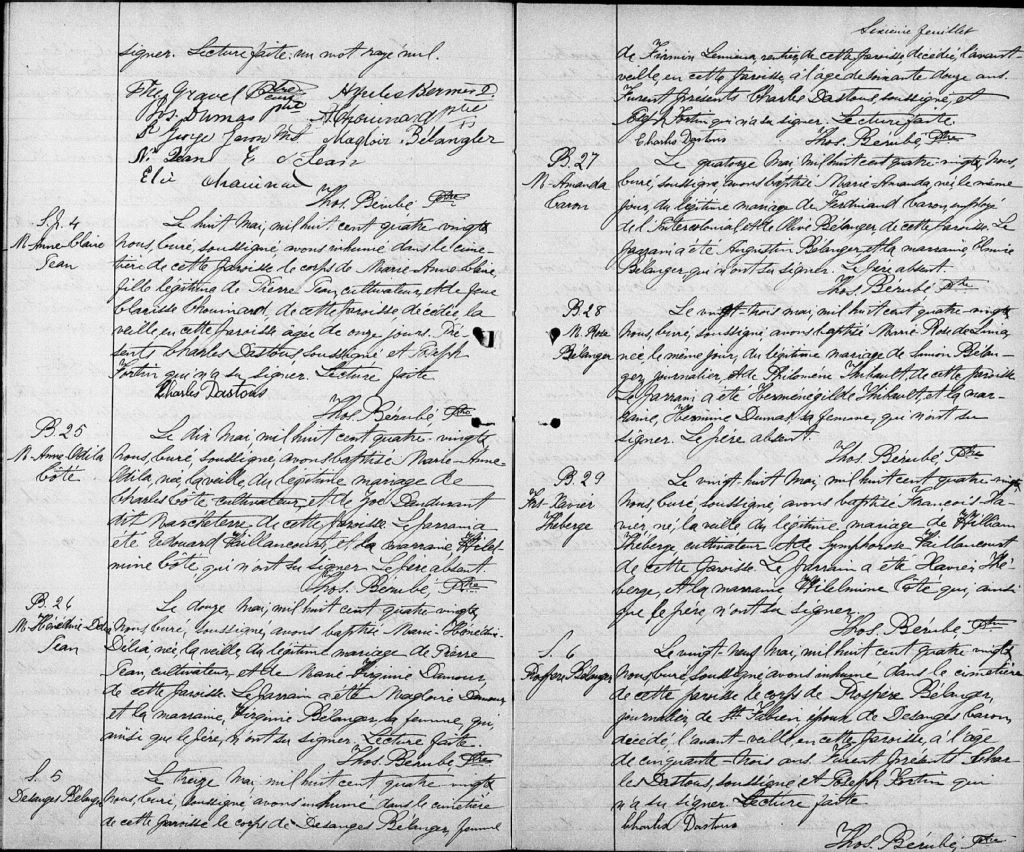 signer. Lecture faite: un mot rayé nul.
Ths Gravel Ptre curé
Jos. Dumas ptre
A. Chouinard ptre
St George Jean
Magloir Bélangler
N. Jean
Elie Chouinard
Thos. Bérubé, Ptre
S.p. 4
M-Anne-Claire
Jean
Le huit Mai, mil huit cent quatre vingt,
Nous, Curé, soussigné, avons inhumé dans le cime-
tière de cette paroisse le corps de Marie-Anne-Claire,
fille légitime de Pierre Jean, cultivateur, et de feue
Clarisse Chouinard, de cette paroisse décédée, la
veille, en cette paroisse âgée de onze jours. Pré-
sents Charles Dastous, soussigné et Joseph
Fortin qui n'a su signer. Lecture faite
Charles Dastous
Thos. Bérubé, Ptre
B. 25
M-Anne-Odila
Côté
Le dix Mai, mil huit cent quatre-vingt,
Nous, Curé, soussigné, avons baptisé Marie-Anne-
Odila, née, la veille, du légitime mariage de
Charles Côté, cultivateur, et de Zoé Dandurant
dit Marcheterre de cette paroisse. Le parrain a
été Edouard Vaillancourt, et la marraine Wilel-
mine Côté qui n'ont su signer. Le père absent.
Thos. Bérubé, Ptre
B. 26
M-Hénédine-Délia
Jean
Le douze Mai, mil huit cent quatre vingt,
Nous, Curé, soussigné, avons baptisé Marie-Hénédine-
Délia, née, la veille, du légitime mariage de Pierre
Jean, cultivateur, et de Marie Virginie Damour,
de cette paroisse. Le parrain a été Magloire Damour,
et la marraine, Virginie Bélanger, sa femme, qui,
ainsi que le père, n'ont su signer. Lecture faite.
Thos. Bérubé, Ptre
S. 5
Desanges Bélanger
Le treize Mai, mil huit cent quatre vingt,
Nous, Curé, soussigné, avons inhumé dans le cimetière
de cette paroisse le corps de Desanges Bélanger, femme
Sixième feuillet
de Firmin Lemieux, rentier, de cette paroisse décédée, l'avant-
veille, en cette paroisse, à l'âge de soixante douze ans.
Furent présents Charles Dastous, soussigné, et
Joseph Fortin qui n'a su signer. Lecture faite
Charles Dastous
Thos. Bérubé, Ptre
B. 27
M-Amanda
Caron
Le quatorze Mai, mil huit cent quatre vingt, Nous,
Curé, soussigné avons baptisé Marie Amanda, née le même
jour, du légitime mariage de Ferdinand Caron, employé
de l'Intercolonial, et de Olive Bélanger de cette paroisse. Le
parrain a été Augustin Bélanger, et la marraine, Elmire
Bélanger, qui n'ont su signer. Le père absent.
Thos. Bérubé, Ptre
B. 28
M. Rose
Bélanger
Le vingt-trois mai, mil huit cent quatre-vingt
Nous, Curé, soussigné, avons baptisé Marie-Rose de Lima,
née le même jour, du légitime mariage de Simon Bélan-
ger, journalier, et de Philomène Thibault, de cette paroisse.
Le parrain a été Herménégilde Thibault, et la mar-
raine, Hermine Dumas, sa femme, qui n'ont su
signer. Le père absent.
Thos. Bérubé, Ptre
B. 29
Frs Xavier
Théberge
Le vingt huit Mai, mil huit cent quatre-vingt,
Nous, Curé, soussigné, avons baptisé François Xa-
vier, né, la veille du légitime mariage de William
Théberge, cultivateur et de Symphorose Vaillancourt
de cette paroisse. Le parrain a été Xavier Thé-
berge, et la marraine Wilelmine Côté qui, ainsi
que le père, n'ont su signer.
Thos. Bérubé, Ptre
S. 6
Prospère Bélanger
Le vingt-neuf Mai, mil huit cent quatre vingt,
Nous, Curé soussigné, avons inhumé dans le cimetière
de cette paroisse le corps de Prospère Bélanger,
journalier de St. Fabien, époux de Desanges Caron,
décédé, l'avant-veille, en cette paroisse, à l'âge
de cinquante-trois ans. Furent présents Char-
les Dastous, soussigné et Joseph Fortin qui
n'a su signer. Lecture faite
Charles Dastous
Thos. Bérubé, Ptre